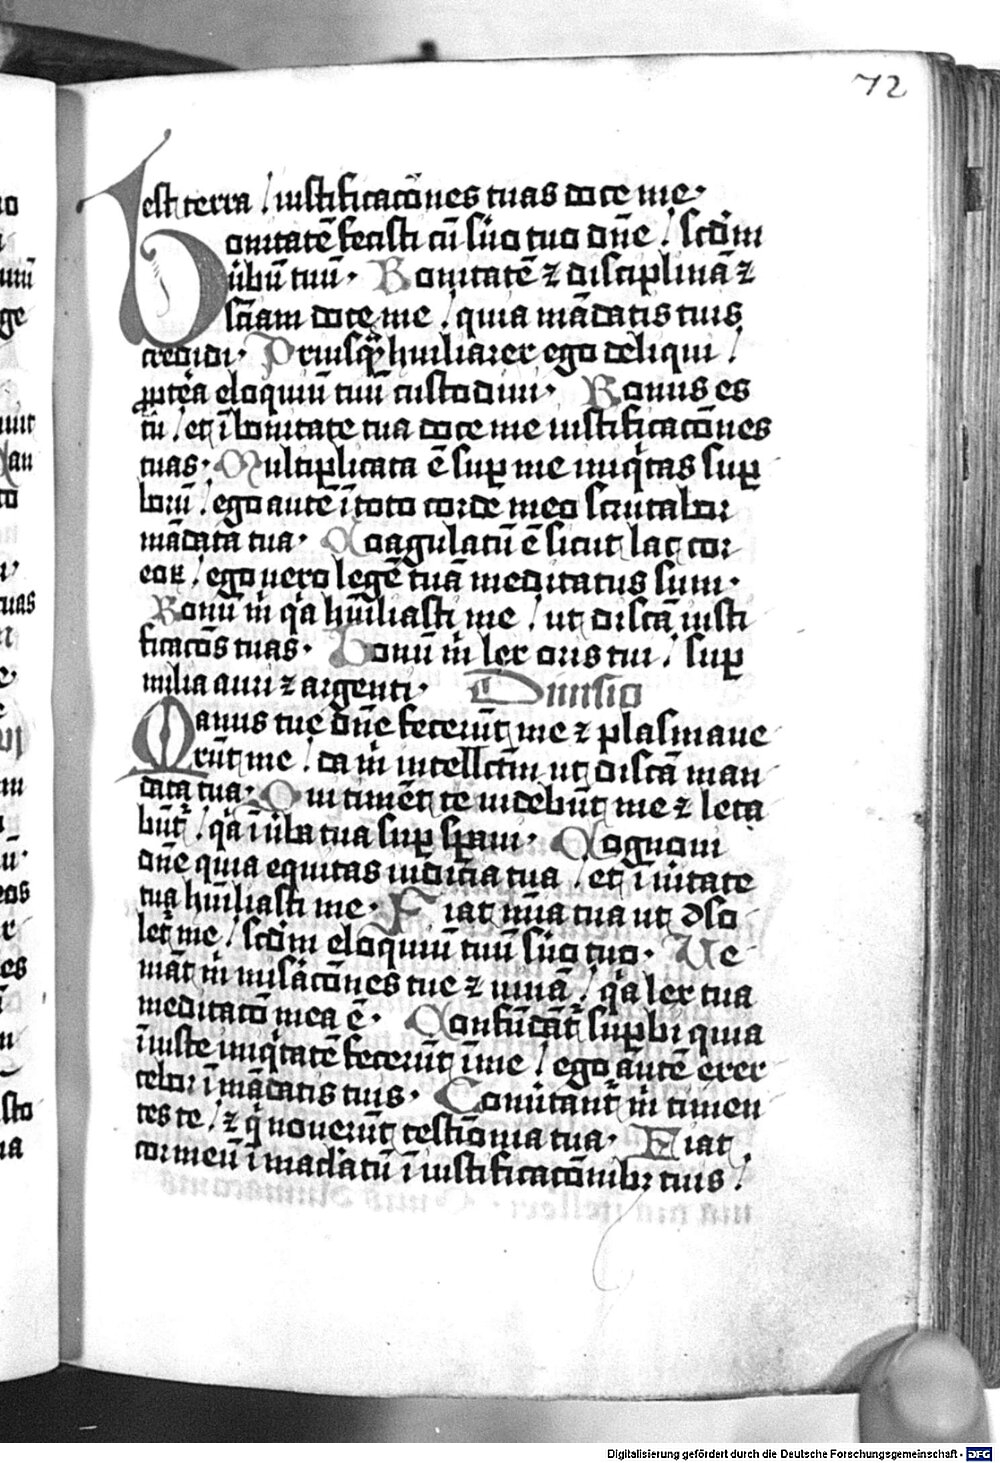 72
est terra / iustificacōnes tuas doce me·
Bonitatē fecisti cū s̄uo tuo dn̄e / scd̄m
ūbū tuū· Bonitatē ⁊ disciplinā ⁊
sc̄iam doce me / quia mādatis tuis
credidi· Priusq̄ȝ hūiliarer ego deliqui /
ꝓpt̄ea eloquiū tuū custodiui· Bonus es
tu / et ī bonitate tua doce me iustificacōnes
tuas· Multiplicata ē suꝑ me iniq̇tas suꝑ
borū / ego autē ī toto corde meo scrutabor
mādata tua· Coagulatū ē sicut lac cor
eoꝝ / ego uero legē tuā meditatus sum·
Bonū ṁ q̇a hūiliasti me / ut discā iusti
ficacōs tuas· Bonū ṁ lex oris tui / suꝑ
milia auri ⁊ argenti· Diuisio
Manus tue dn̄e fecerūt me ⁊ plasmaue
rūt me / da ṁ intellc̄tm ut discā man
data tua· Qui timēt te uidebūt me ⁊ leta
būt᷑ / q̇a ī ūba tua suꝑ sꝑaui· Cognoui
dn̄e quia equitas iudicia tua / et ī ūitate
tua hūiliasti me· Fiat mīa tua ut ↄso
let᷑ me / scd̄m eloquiū tuū s̄uo tuo· Ue
niāt ṁ misacōnes tue ⁊ uiuā / q̇a lex tua
meditacō mea ē· Confūdāt᷑ suꝑbi quia
īiuste iniq̇tatē fecerūt ī me / ego autē exer
cebor ī mādatis tuis· Conūtant᷑ ṁ timen
tes te / ⁊ q̇ nouerūt testīonia tua· Fiat
cor meū īmacl̄atū ī iustificacōnibꝫ tuis /
Digitalisierung gefördert durch die Deutsche Forschungsgemeinschaft - DFG